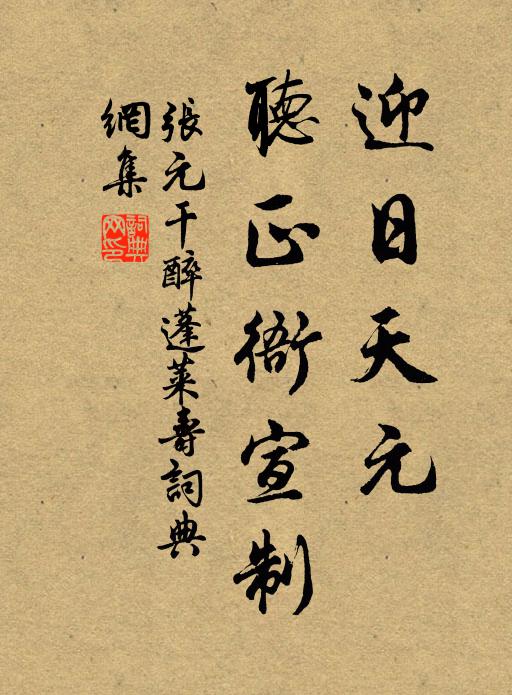 迎日天元
聽正衙宣制
張元干醉蓬萊壽詞典
網集
詞典
网印